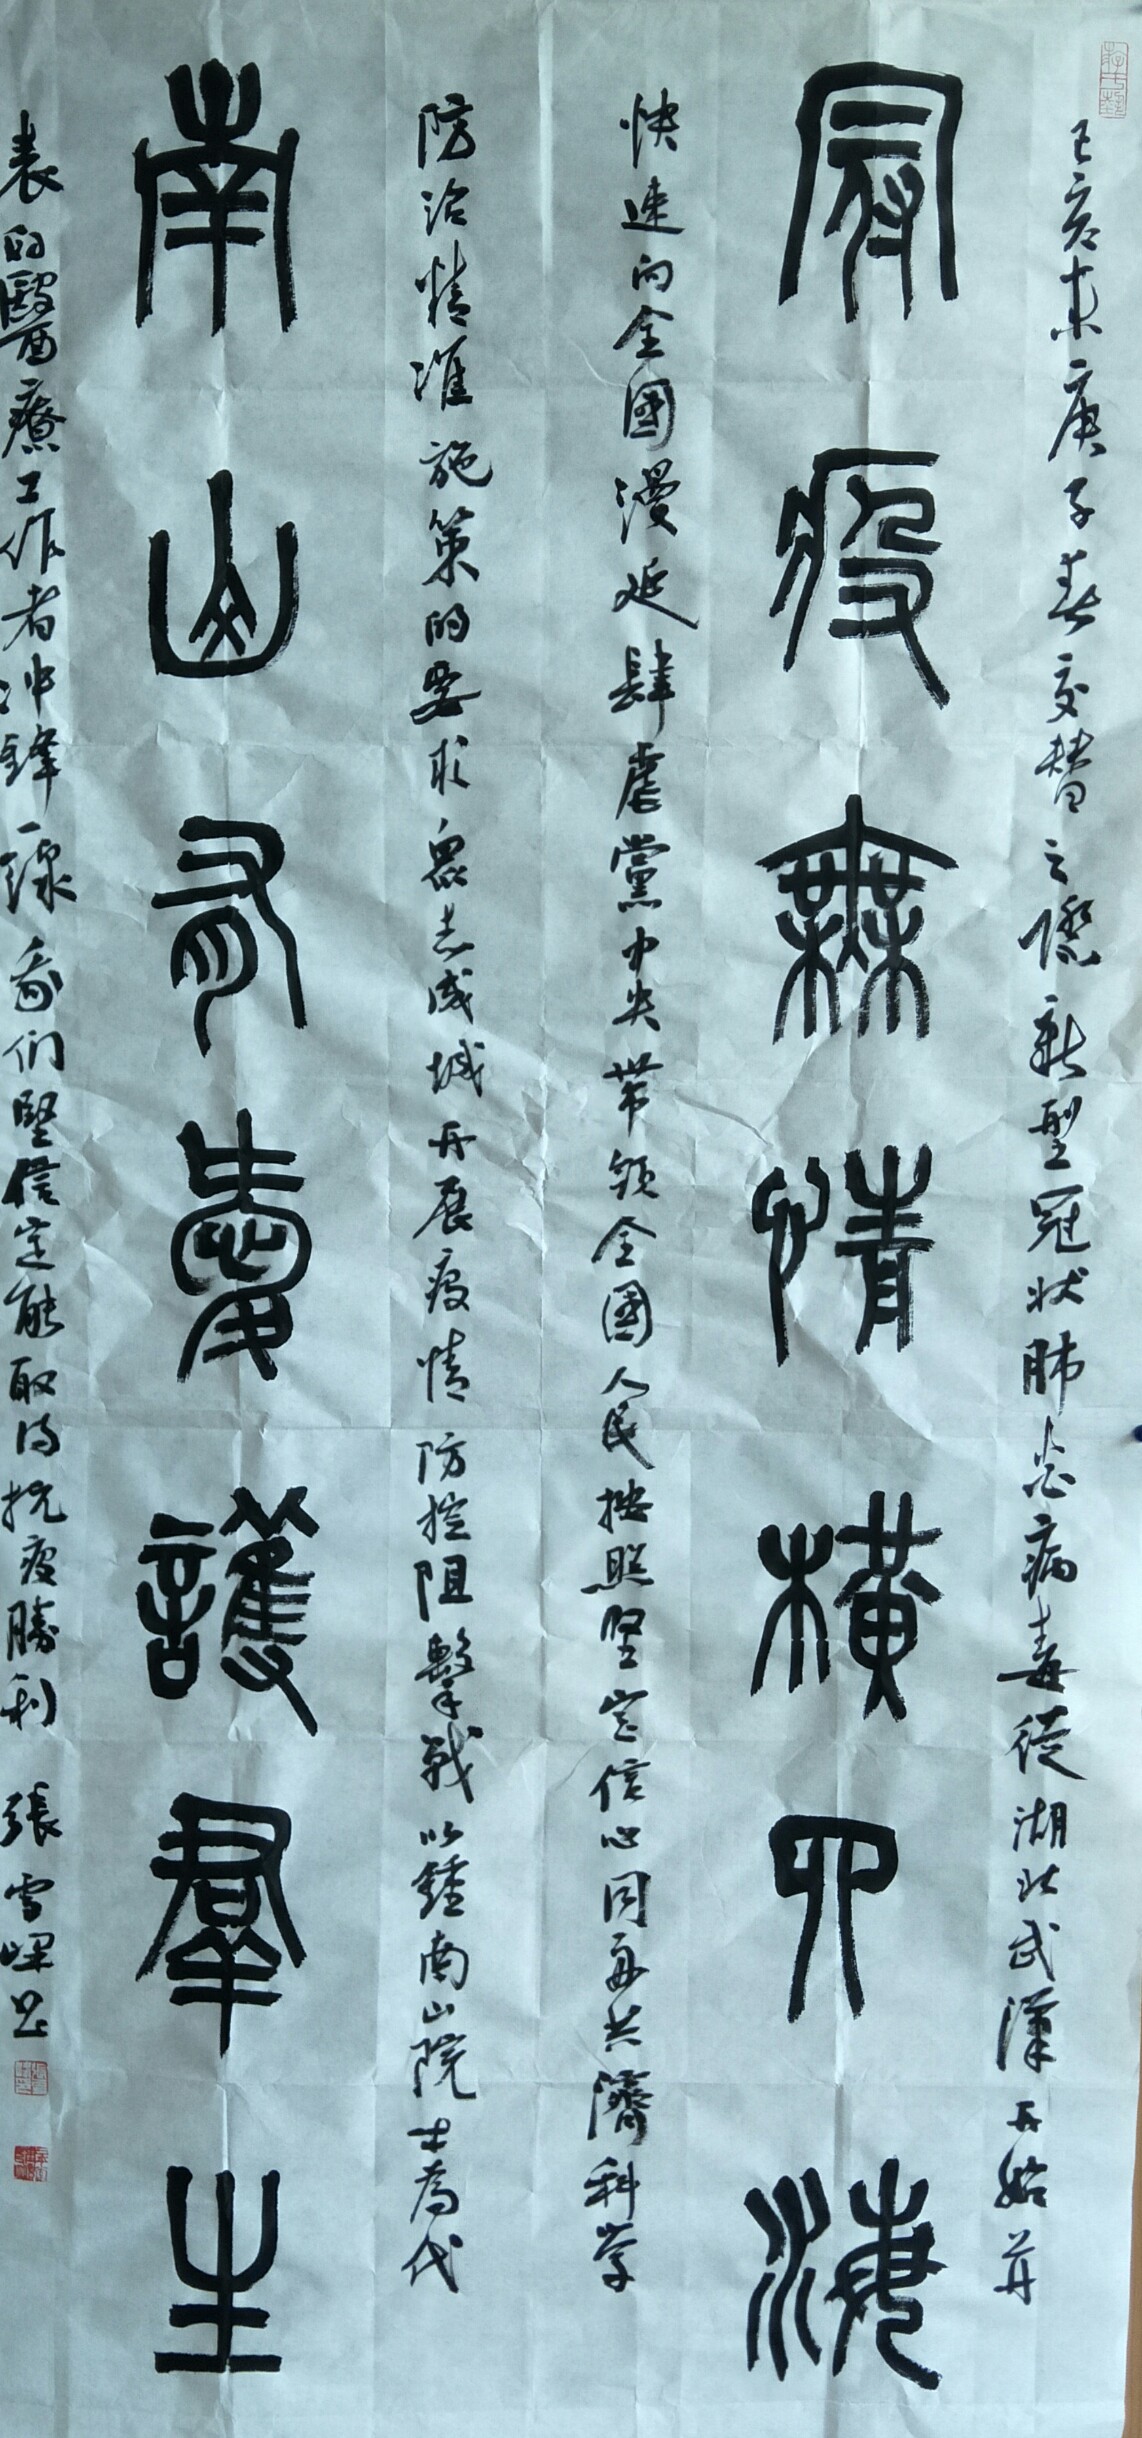 己亥末庚子春交替之際新型冠状肺炎病毒從湖北武漢开始并
冠疫無情橫四海
快速向全國漫延肆虐黨中央带領全國人民按照堅定信心同舟共濟科学
防治精准施策的要求眾志成城开展疫情防控阻擊戰以鍾南山院士為代
南山有愛護羣生
表的醫療工作者冲鋒一線我們堅信定能取得抗疫勝利 張雪峰书